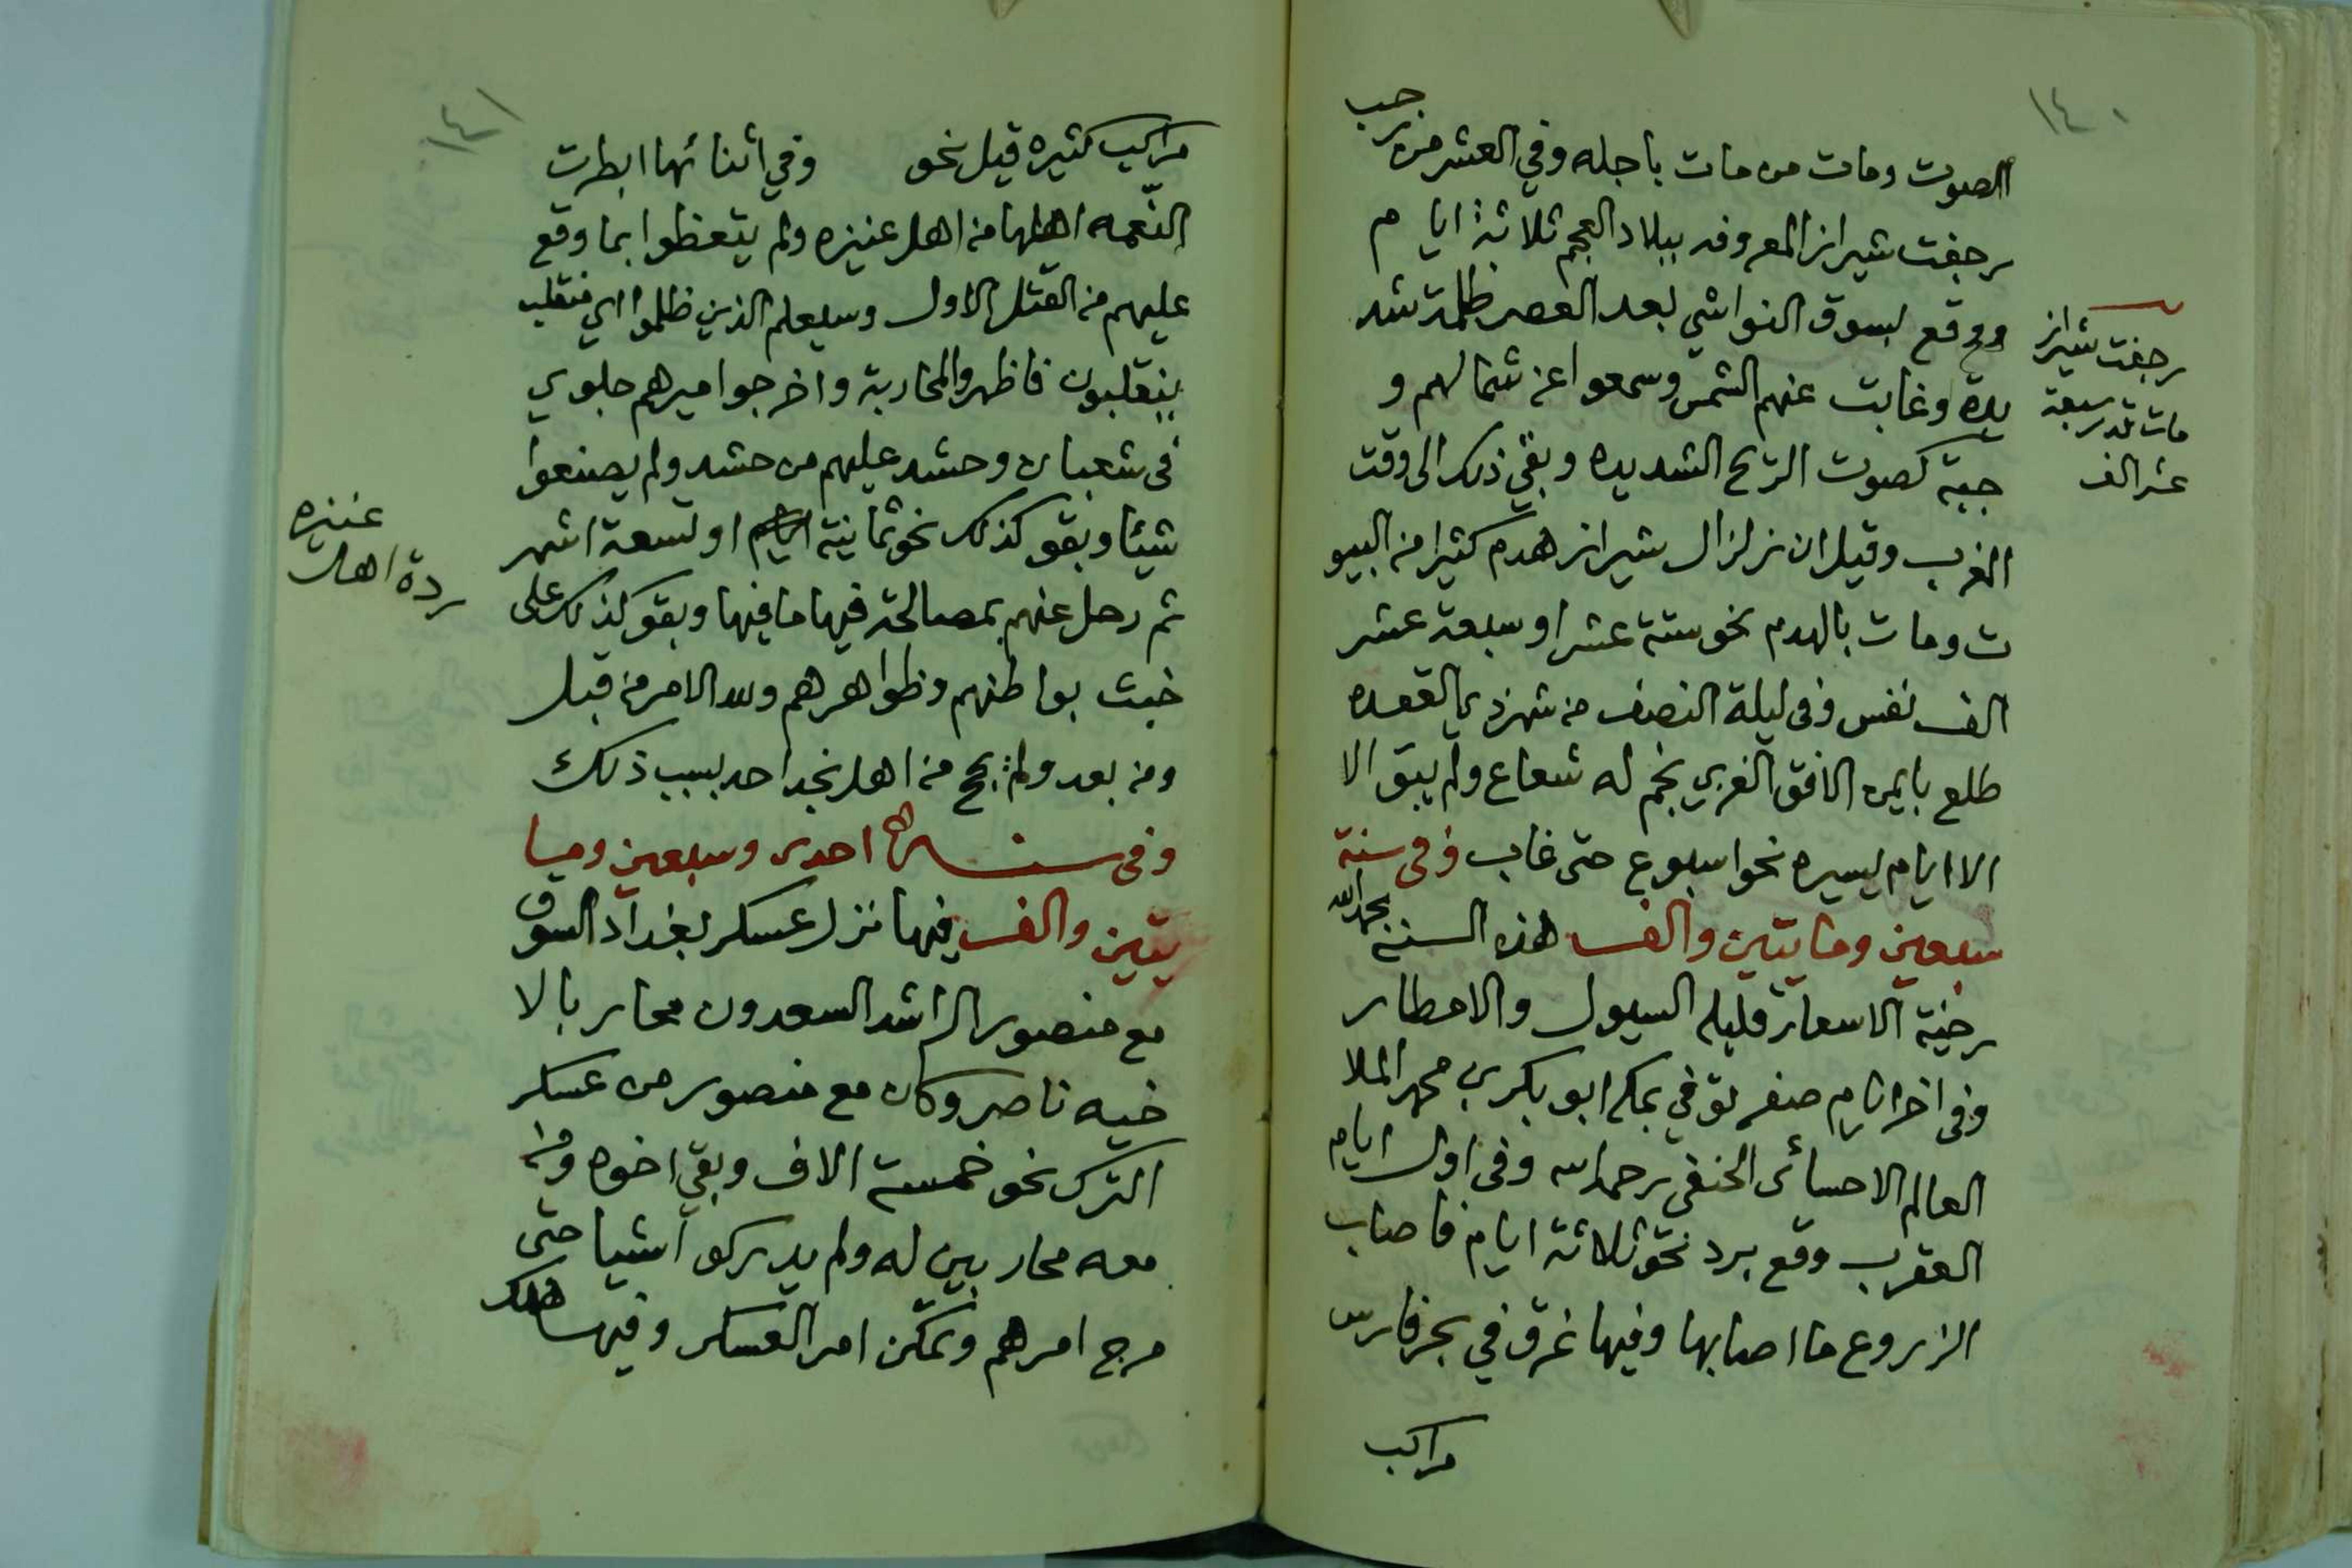 ١٤٠
الصوت ومات من مات باجله وفي العشر من رجب
رجفت شيراز المعروفه ببلاد العجم ثلاثة ايام
ووقع بسوق النواشي بعد العصر ظلمة شد
يدة وغابت عنهم الشمس وسمعوا عن شمالهم و
جبة كصوت الريح الشديده وبقي ذلك الى وقت
المغرب وقيل ان زلزال شيراز هدم كثيرا من البيو
ت ومات بالهدم نحو ستة عشر او سبعة عشر
الف نفس وفي ليلة النصف من شهر ذي القعده
طلع بايمن الافق الغربي نجم له شعاع ولم يبق الا
الا ايام يسيره نحو اسبوع حتى غاب وفي سنة
سبعين ومايتين والف هذه السنة بحمد الله
رخية الاسعار قليله السيول والامطار
وفي اخر ايام صفر توفي بمكه ابو بكر بن محمد الملا
العالم الاحسائي الحنفي رحمه الله وفي اول ايام
العقرب وقع برد نحو ثلاثة ايام فاصاب
الزروع ما اصابها وفيها غرق في بحر فارس
مراكب
رجفت شيراز
مات قدر سبعة
عشر الف
١٤١
مراكب كثيره قيل نحو وفي اثنائها ابطرت
النعمه اهلها من اهل عنيزه ولم يتعظوا بما وقع
عليهم من القتل الاول وسيعلم الذين ظلموا اي منقلب
ينقلبون فاظهروا المحاربة واخرجوا ميرهم جلوي
في شعبان وحشد عليهم من حشد ولم يصنعوا
شيئا وبقو كذلك نحو ثمانية او تسعة اشهر
ثم رحل عنهم بمصالحة فيها ما فيها وبقو كذلك على
خبث بواطنهم وظواهرهم ولله الامر من قبل
ومن بعد ولم يحج من اهل نجد احد بسبب ذلك
وفي سنة احدى وسبعين وميا
يتين والف فيها نزل عسكر بغداد السوق
مع منصور الراشد السعدون محاربا لا
خيه ناصر وكان مع منصور من عسكر
الترك نحو خمسة الاف وبقي اخوه ومن
معه محاربين له ولم يدركو اشيا حتى
مرج امرهم وتمكن امر العسكر وفيها هلك
عنيزه
ردة اهل